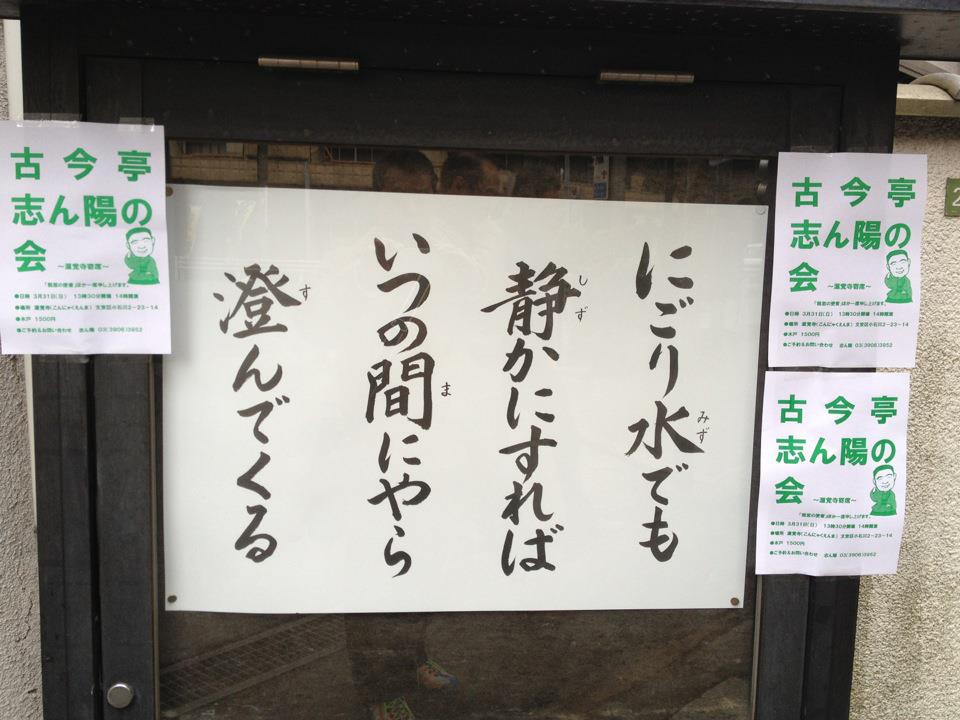 にごり水でも
みず
静かにすれば
しず
いつの間にやら
ま
澄んでくる
す
古今亭
志ん陽の
会
～源覚寺寄席～
ほか一席申し上げます。
●日時 3月31日(日) 13時30分開場 14時開演
●場所 源覚寺(こんにゃくえんま) 文京区小石川2－23－14
●木戸 1500円
●ご予約&お問い合わせ 志ん陽 03(3906)3952
古今亭
志ん陽の
会
～源覚寺寄席～
ほか一席申し上げます。
●日時 3月31日(日) 13時30分開場 14時開演
●場所 源覚寺(こんにゃくえんま) 文京区小石川2－23－14
●木戸 1500円
●ご予約&お問い合わせ 志ん陽 03(3906)3952
古今亭
志ん陽の
会
～源覚寺寄席～
ほか一席申し上げます。
●日時 3月31日(日) 13時30分開場 14時開演
●場所 源覚寺(こんにゃくえんま) 文京区小石川2－23－14
●木戸 1500円
●ご予約&お問い合わせ 志ん陽 03(3906)3952
2